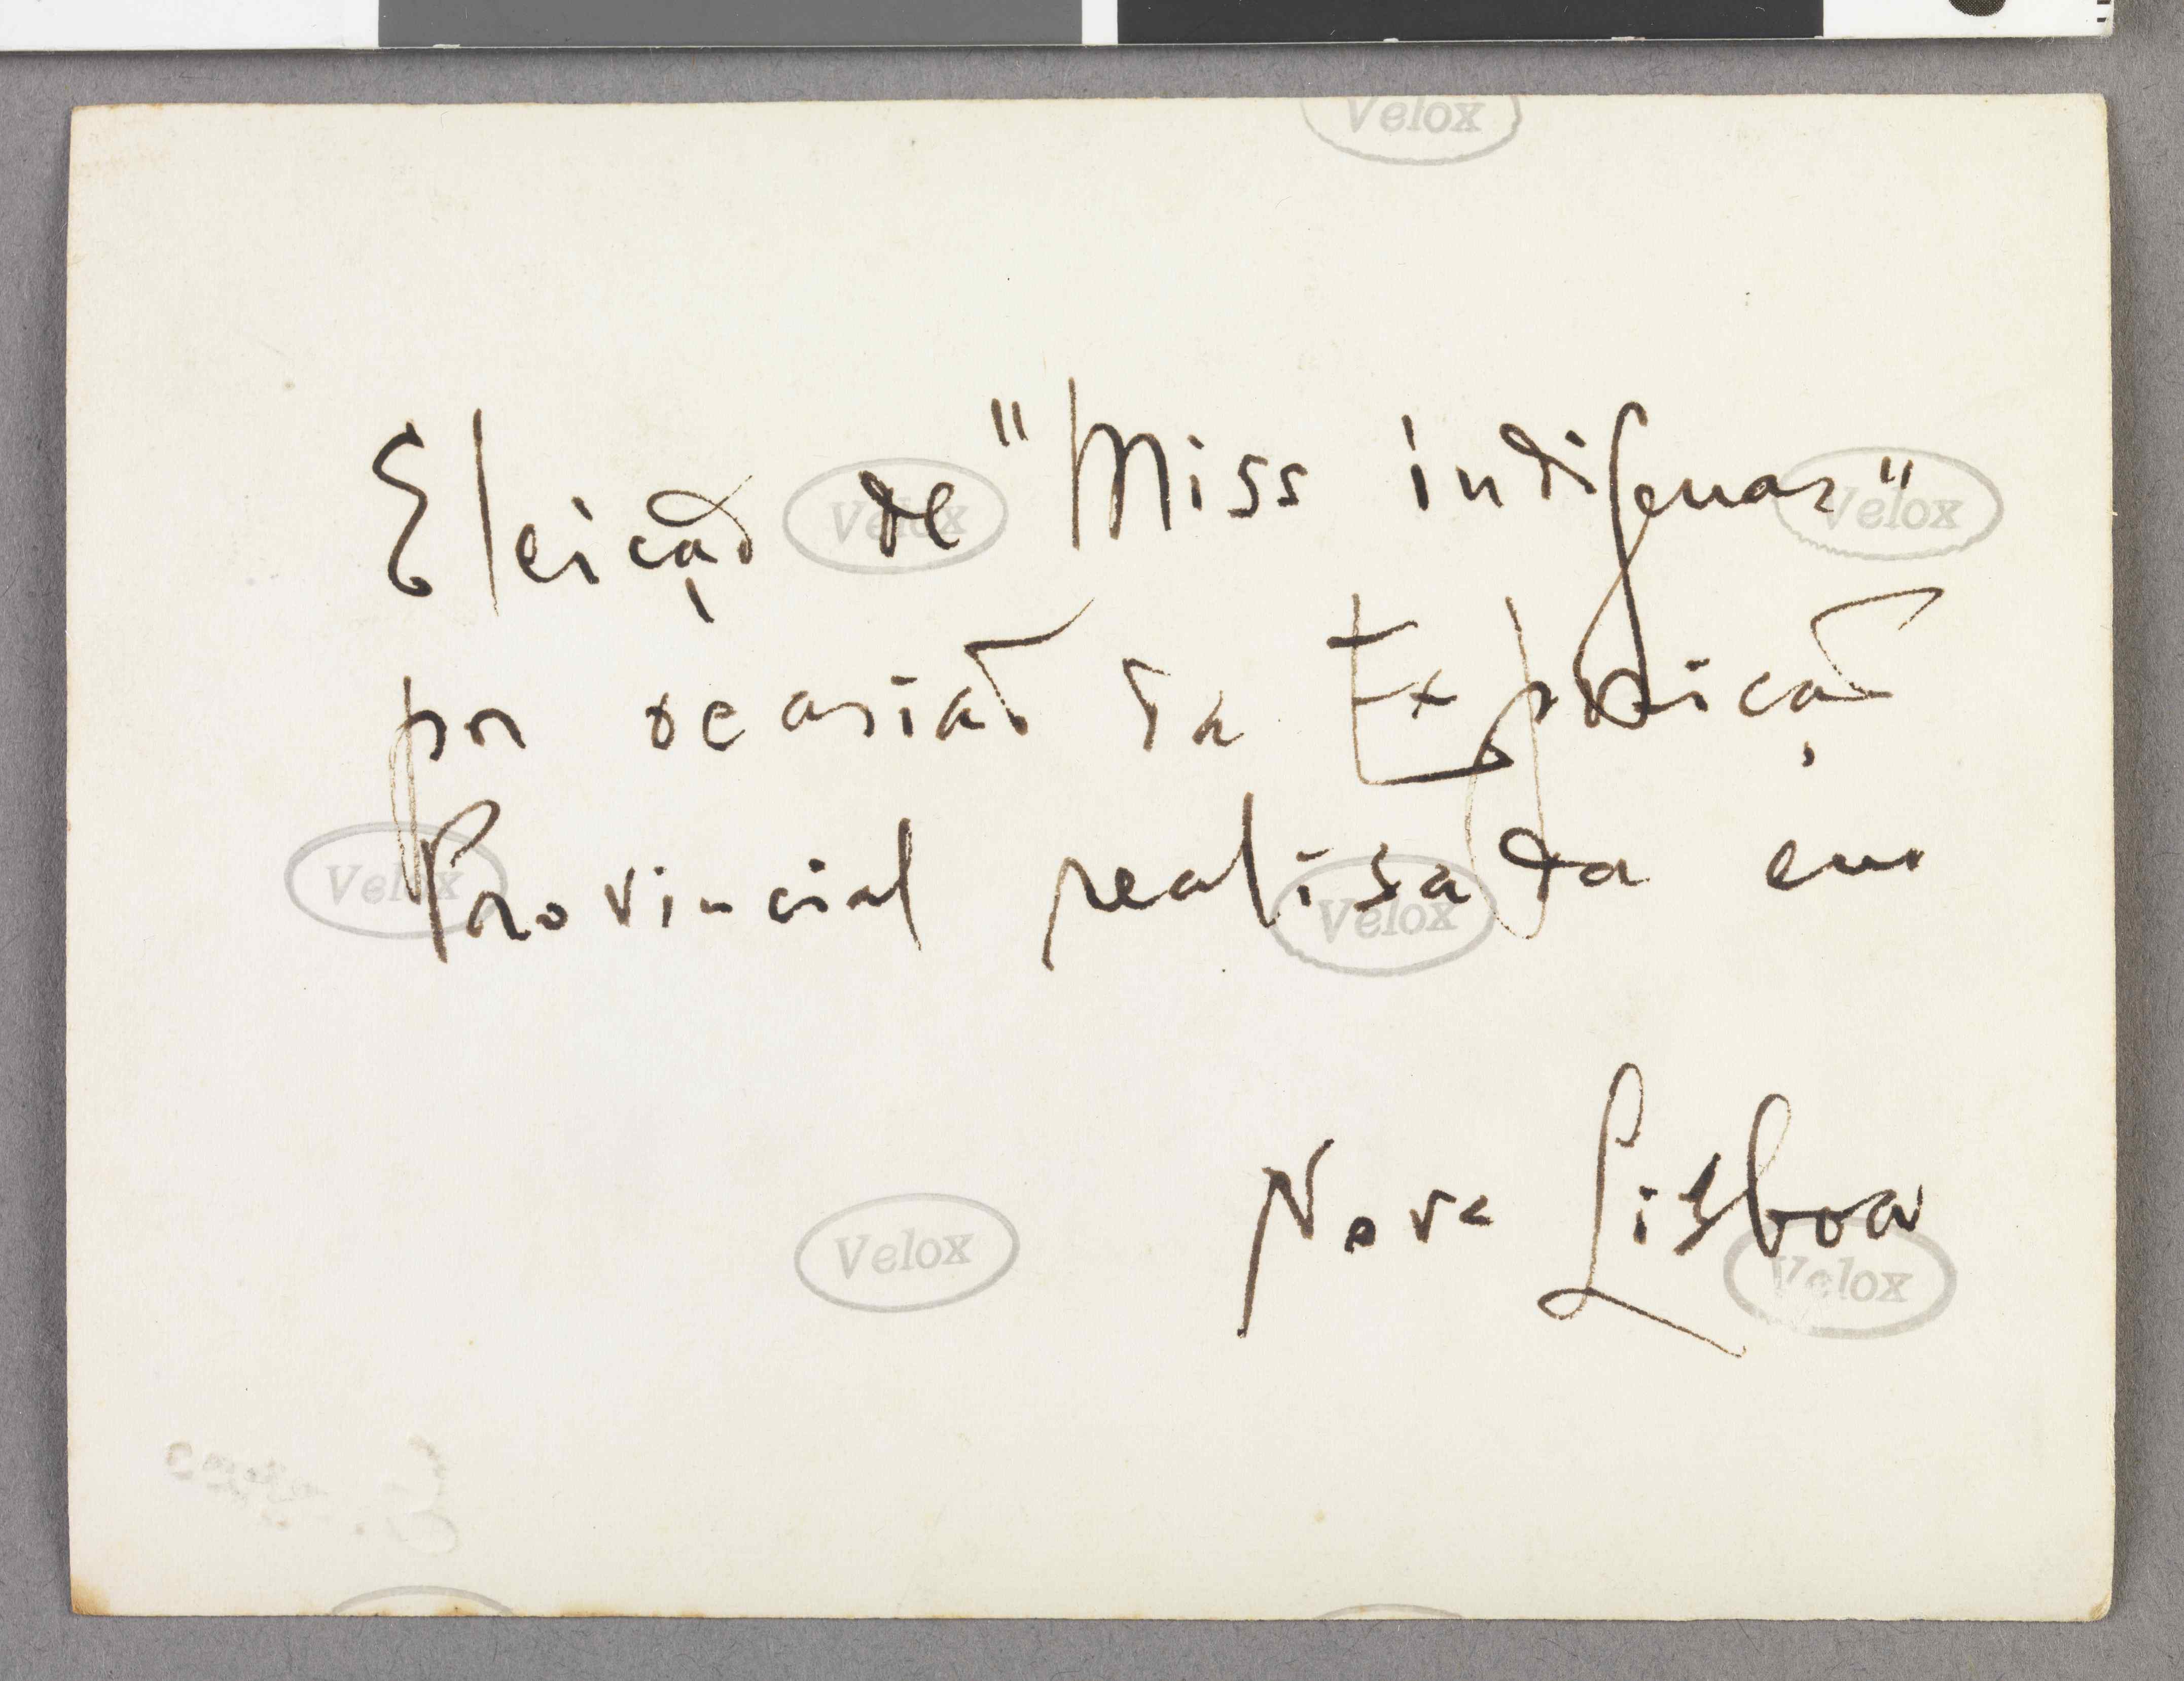 Velox
Eleição de "Miss indígenas"
Velox Velox
por ocasião da Exposição
Provincial realisada em
Velox Velox
Nova Lisboa
Velox Velox